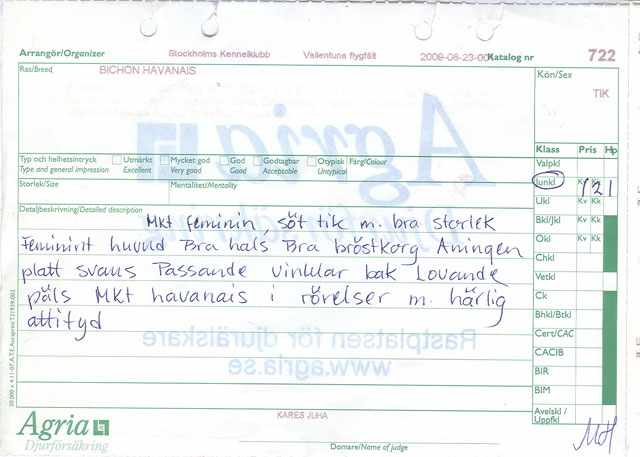 Arrangör/Organizer Stockholms Kennelklubb Vallentuna flygfält 2009-08-23-00 Katalog nr 722
Ras/Breed BICHON HAVANAIS
Kön/Sex
TIK
Klass Pris Hp
Typ och helhetsintryck Utmärkt Mycket god God Godtagbar Otypisk Färg/Colour
Type and general impression Excellent Very good Good Acceptable Untypical
Storlek/Size Mentalitet/Mentality
Detaljbeskrivning/Detailed description
Mkt feminin, söt tik m. bra storlek
Feminint huvud Bra hals Bra bröstkorg Aningen
platt svans Passande vinklar bak Lovande
päls Mkt havanais i rörelser m. härlig
attityd
Valpkl
Junkl Kv Kk 1 2 1
Ukl Kv Kk
Bkl/Jkl Kv Kk
Ökl Kv Kk
Chkl
Vetkl
Ck
Bhkl/Btkl
Cert/CAC
CACIB
BIR
BIM
Avelskl/
Uppfkl
Agria
Rastplatsen för djurälskare
www.agria.se
Agria
Djurförsäkring
KARES JUHA
Domare/Name of judge